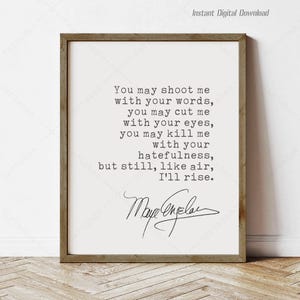 Instant Digital Download
You may shoot me
with your words,
you may cut me
with your eyes,
you may kill me
with your
hatefulness,
but still, like air,
I'll rise.
Maya Angelou